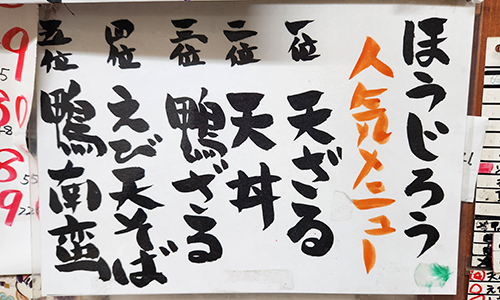 ほうじろう
人気メニュー
一位 天ざる
二位 天丼
三位 鴨ざる
四位 えび天そば
五位 鴨南蛮